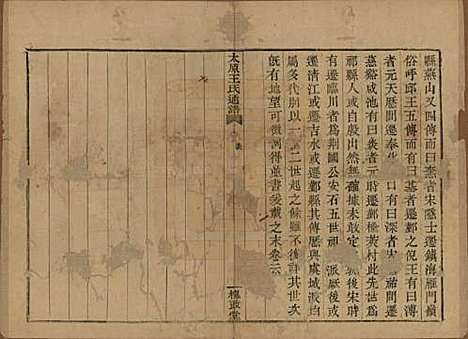 縣燕山又四傳而曰憲者宋隱士遷鎮海雁門嶺
俗呼邱王五傳而有曰基者遷鄞之倪王有曰溥
者元天歷間遷奉化 口有曰深者 遷
慈谿咸池有曰勇者元時遷鄞樓莫村此先世爲
祁縣人自殷出然無確據未敢定 厥後宋時
有遷臨川者爲荆國公安石五世祖 派厥後或
遷清江或遷吉水或遷鄞縣其傳歷與虞城派均
屬多代別以一 二世起之餘雖不 詳其世次
既有地望可徵例得並書爰載之末卷云
太原王氏通譜
槐蔭堂